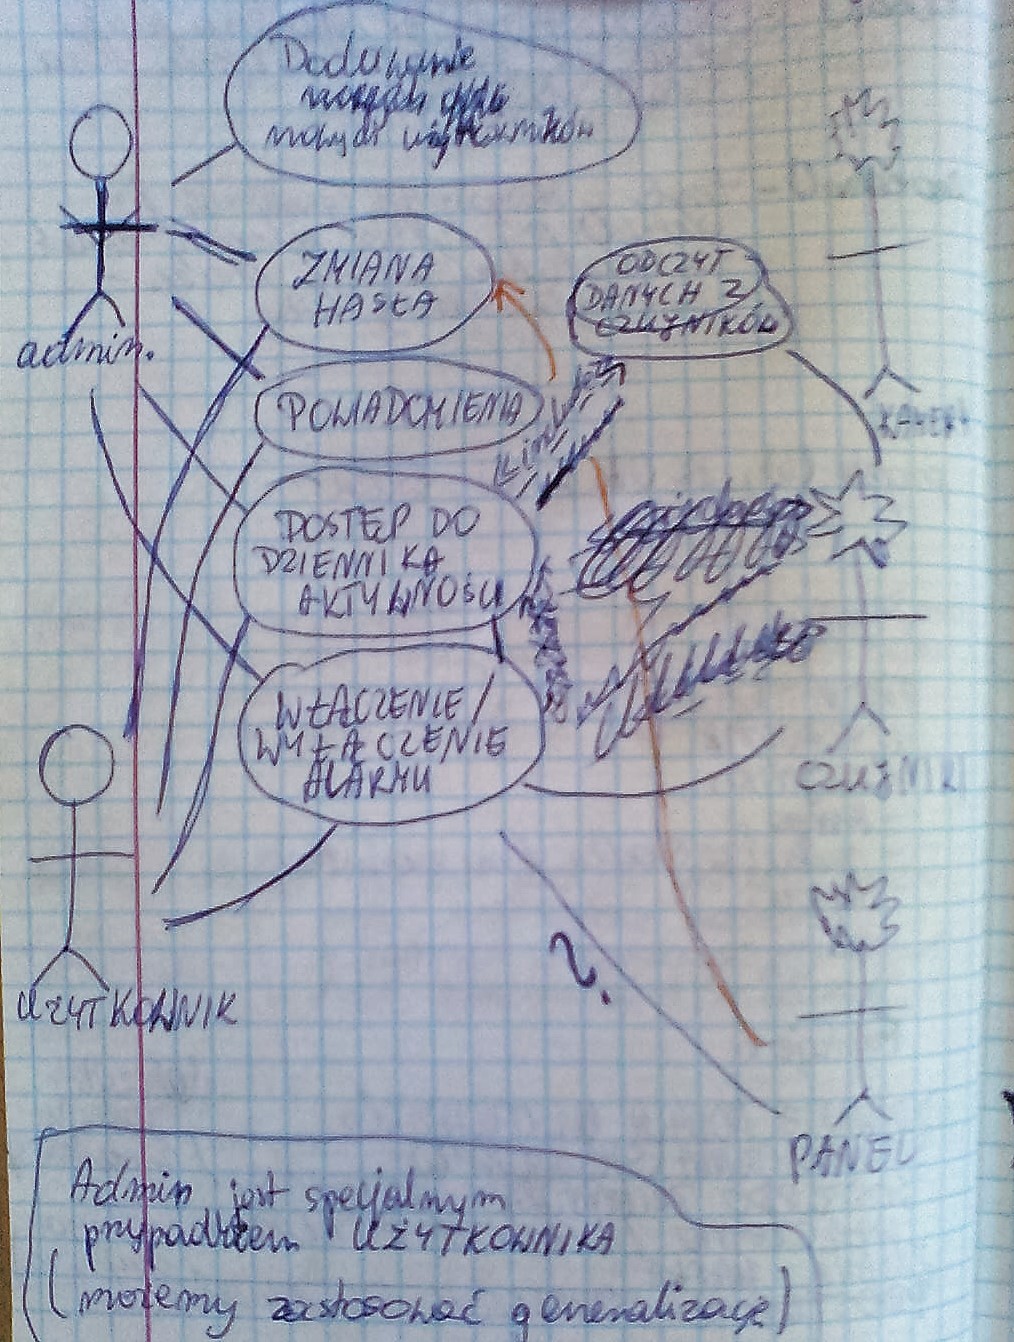 Dodawanie
nowych użytkowników
admin.
ZMIANA
HASŁA
ODCZYT
DANYCH Z
CZUJNIKÓW
POWIADOMIENIA
DOSTĘP DO
DZIENNIKA
AKTYWNOŚCI
WŁĄCZENIE/
WYŁĄCZENIE
ALARMU
CZUJNIKI
UŻYTKOWNIK
?
PANEL
Admin jest specjalnym
przypadkiem UŻYTKOWNIKA
(możemy zastosować generalizację)